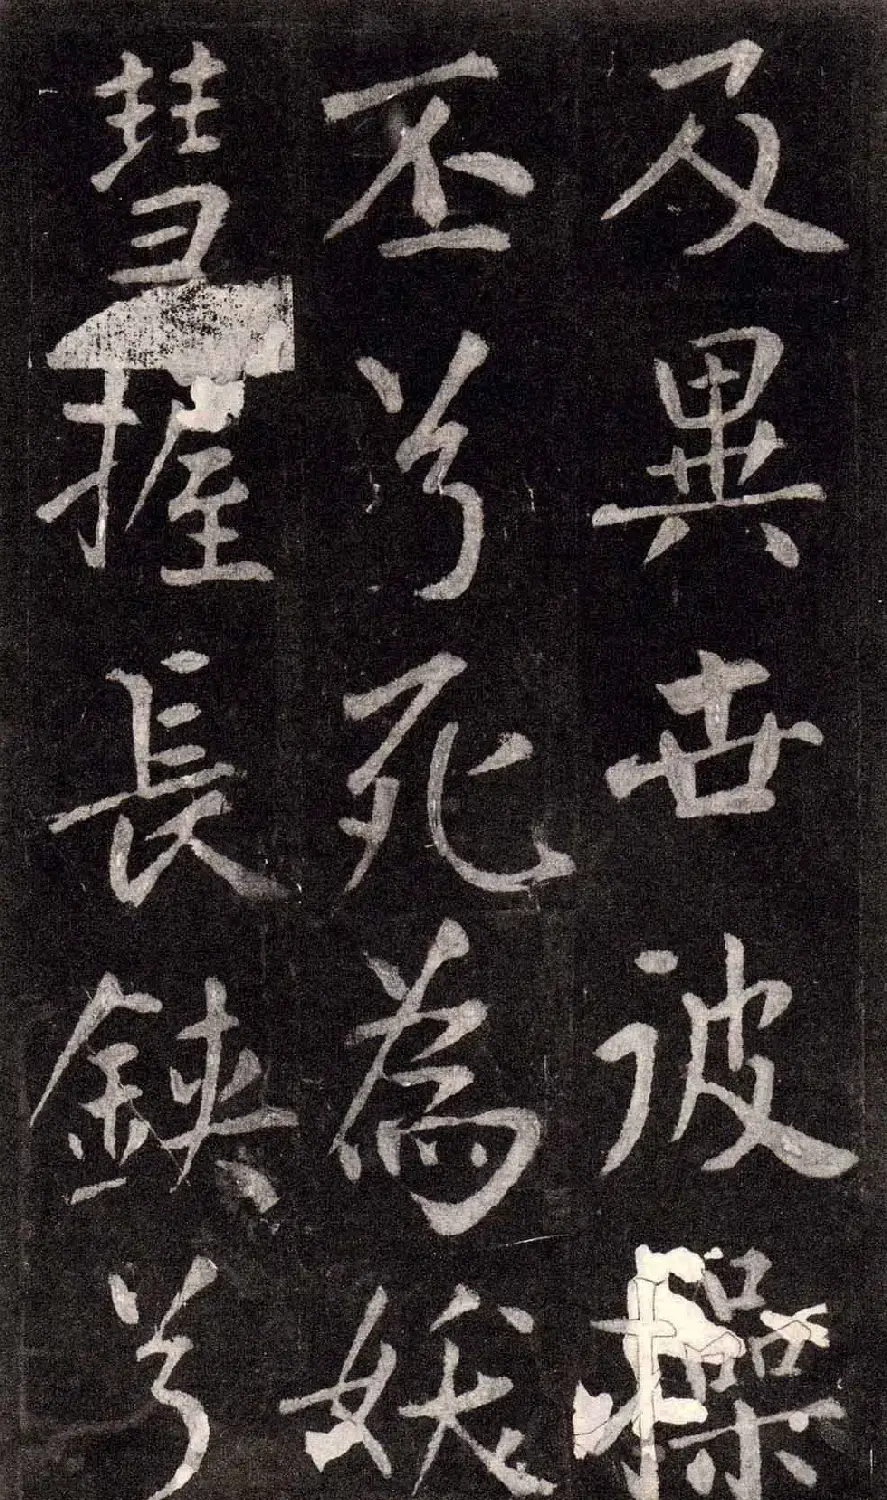 及異世彼操
丕兮死為妖
彗握長鋏兮